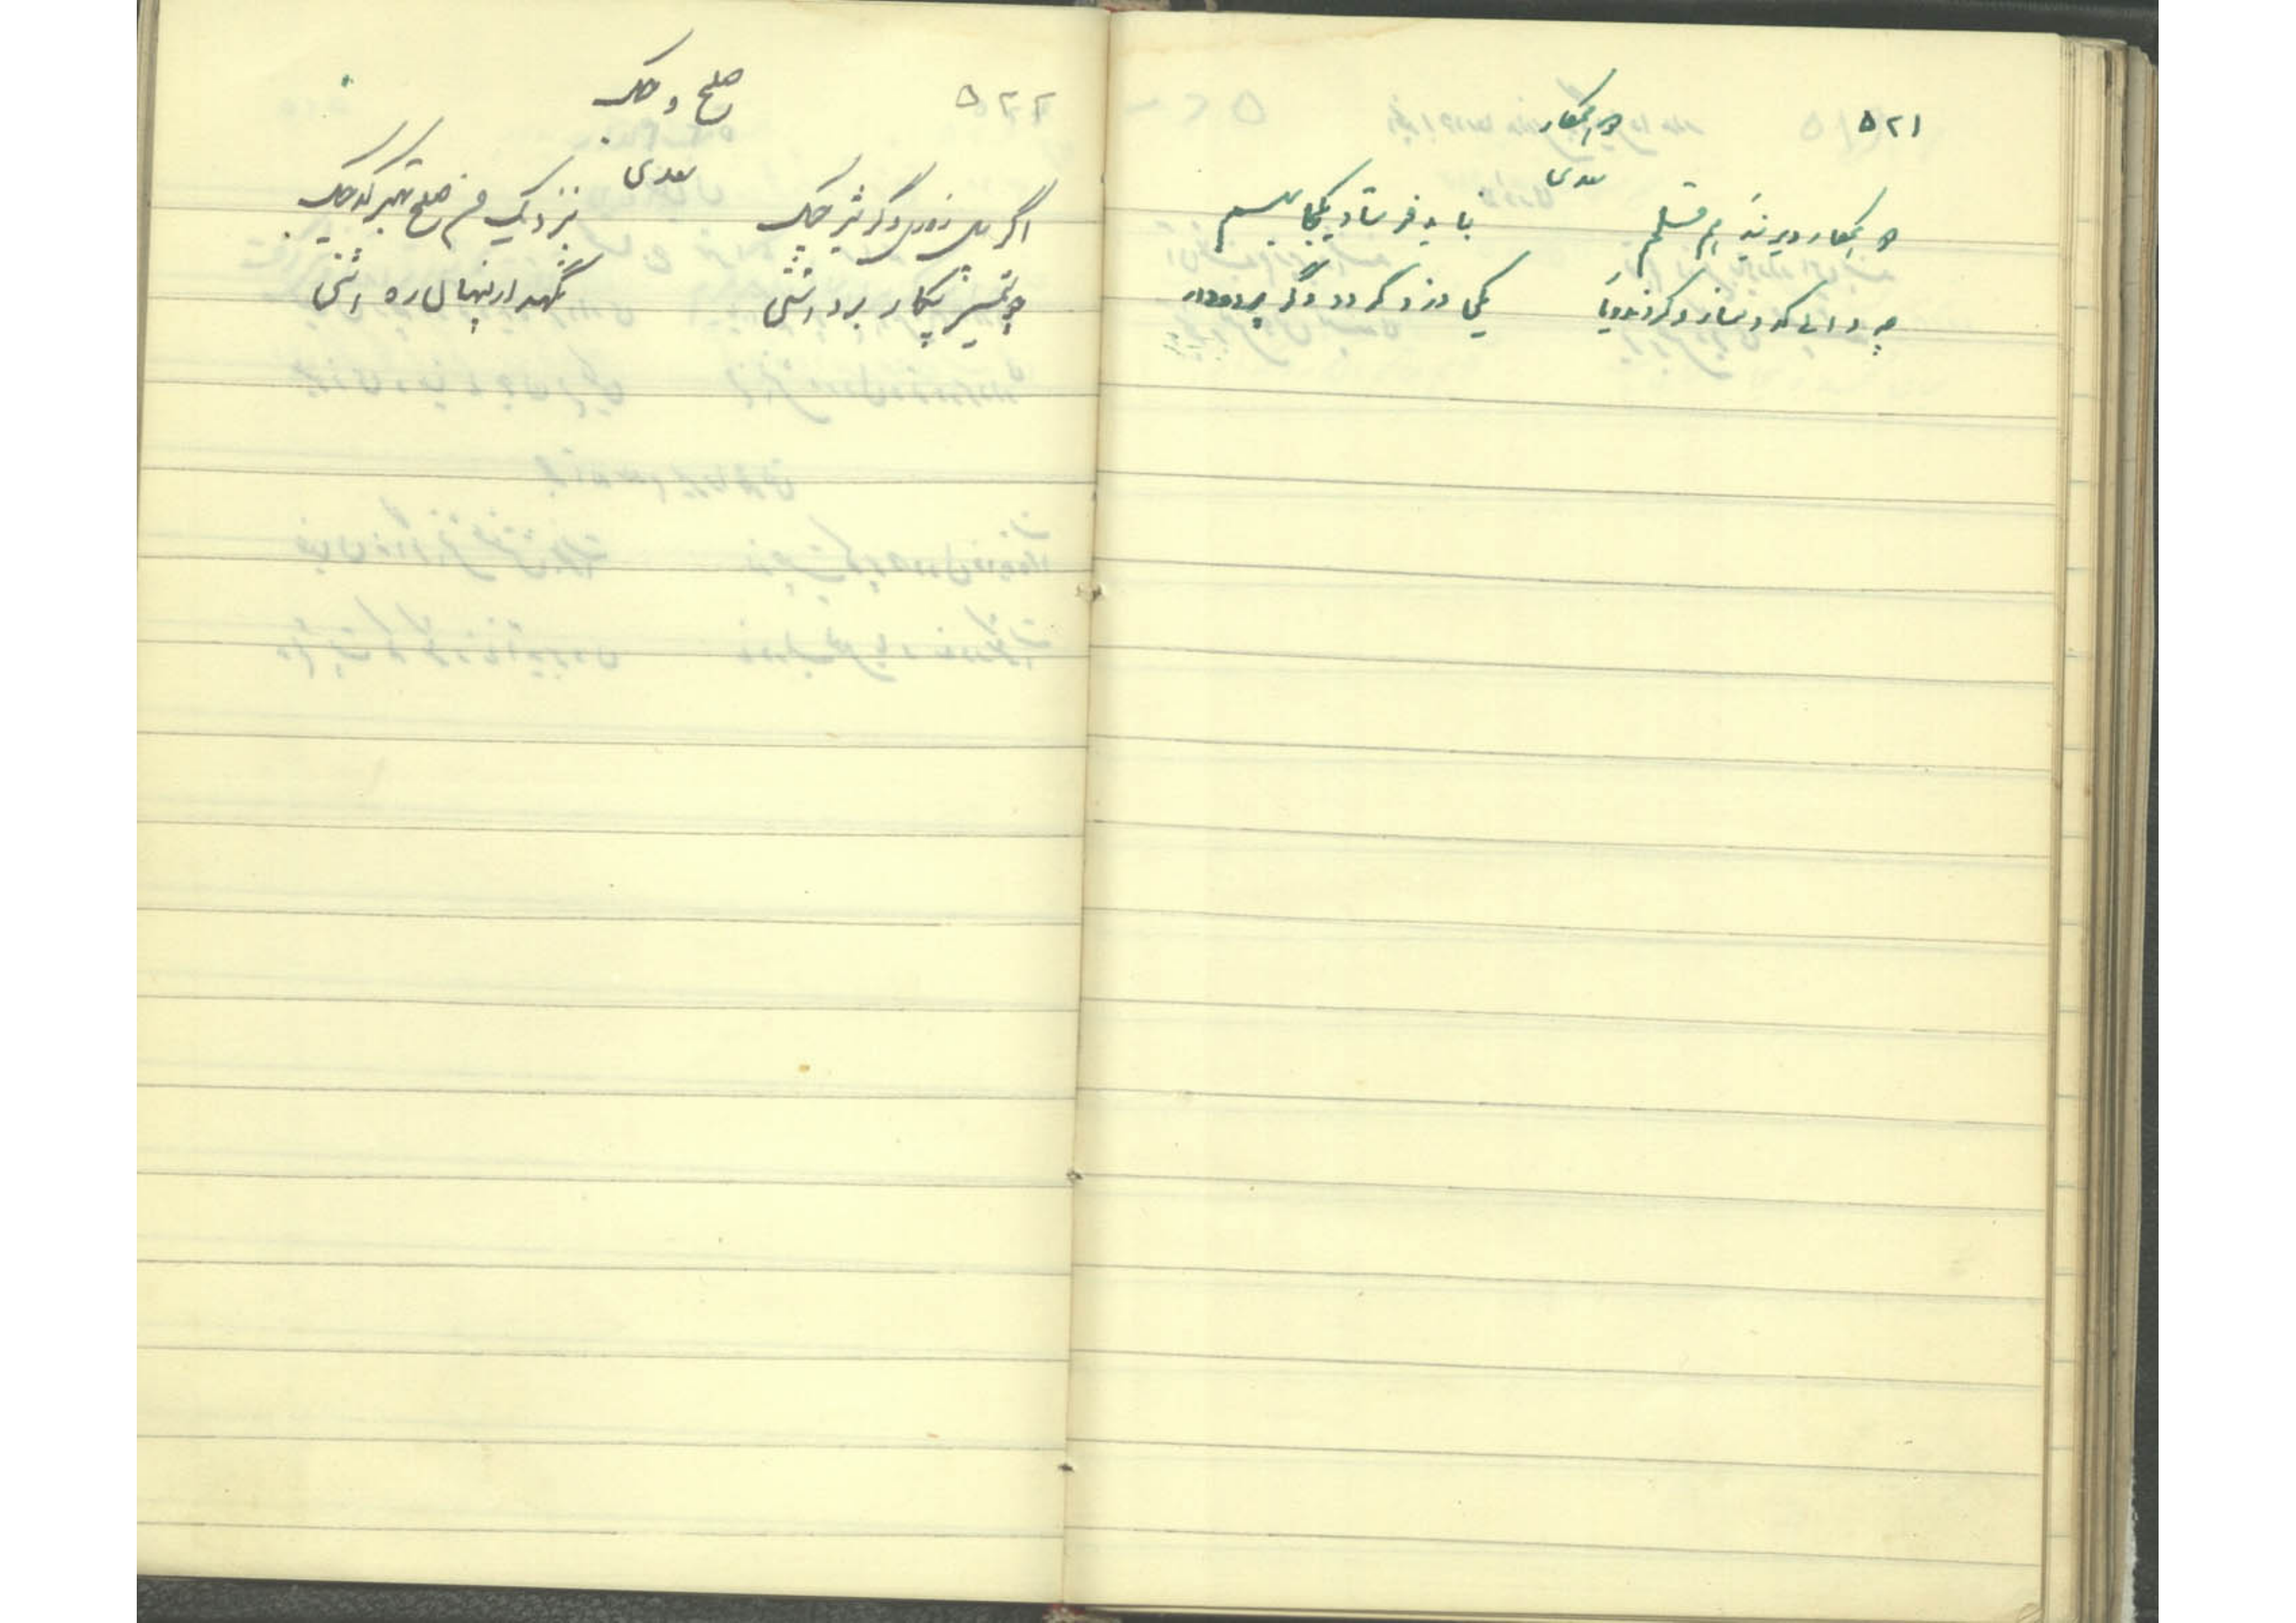 ۵۲۱
دو همکار
سعدی
دو همکار دیرینه هم قلم
نباید فرستاد یکجا بهم
چه دانی که دمساز گردند و یار
یکی دزد گردد دگر پرده‌دار
۵۲۲
صلح و جنگ
سعدی
اگر پیل زوری وگر شیر چنگ
بنزدیک من صلح بهتر که جنگ
چو شمشیر پیکار برداشتی
نگهدار پنهان ره آشتی